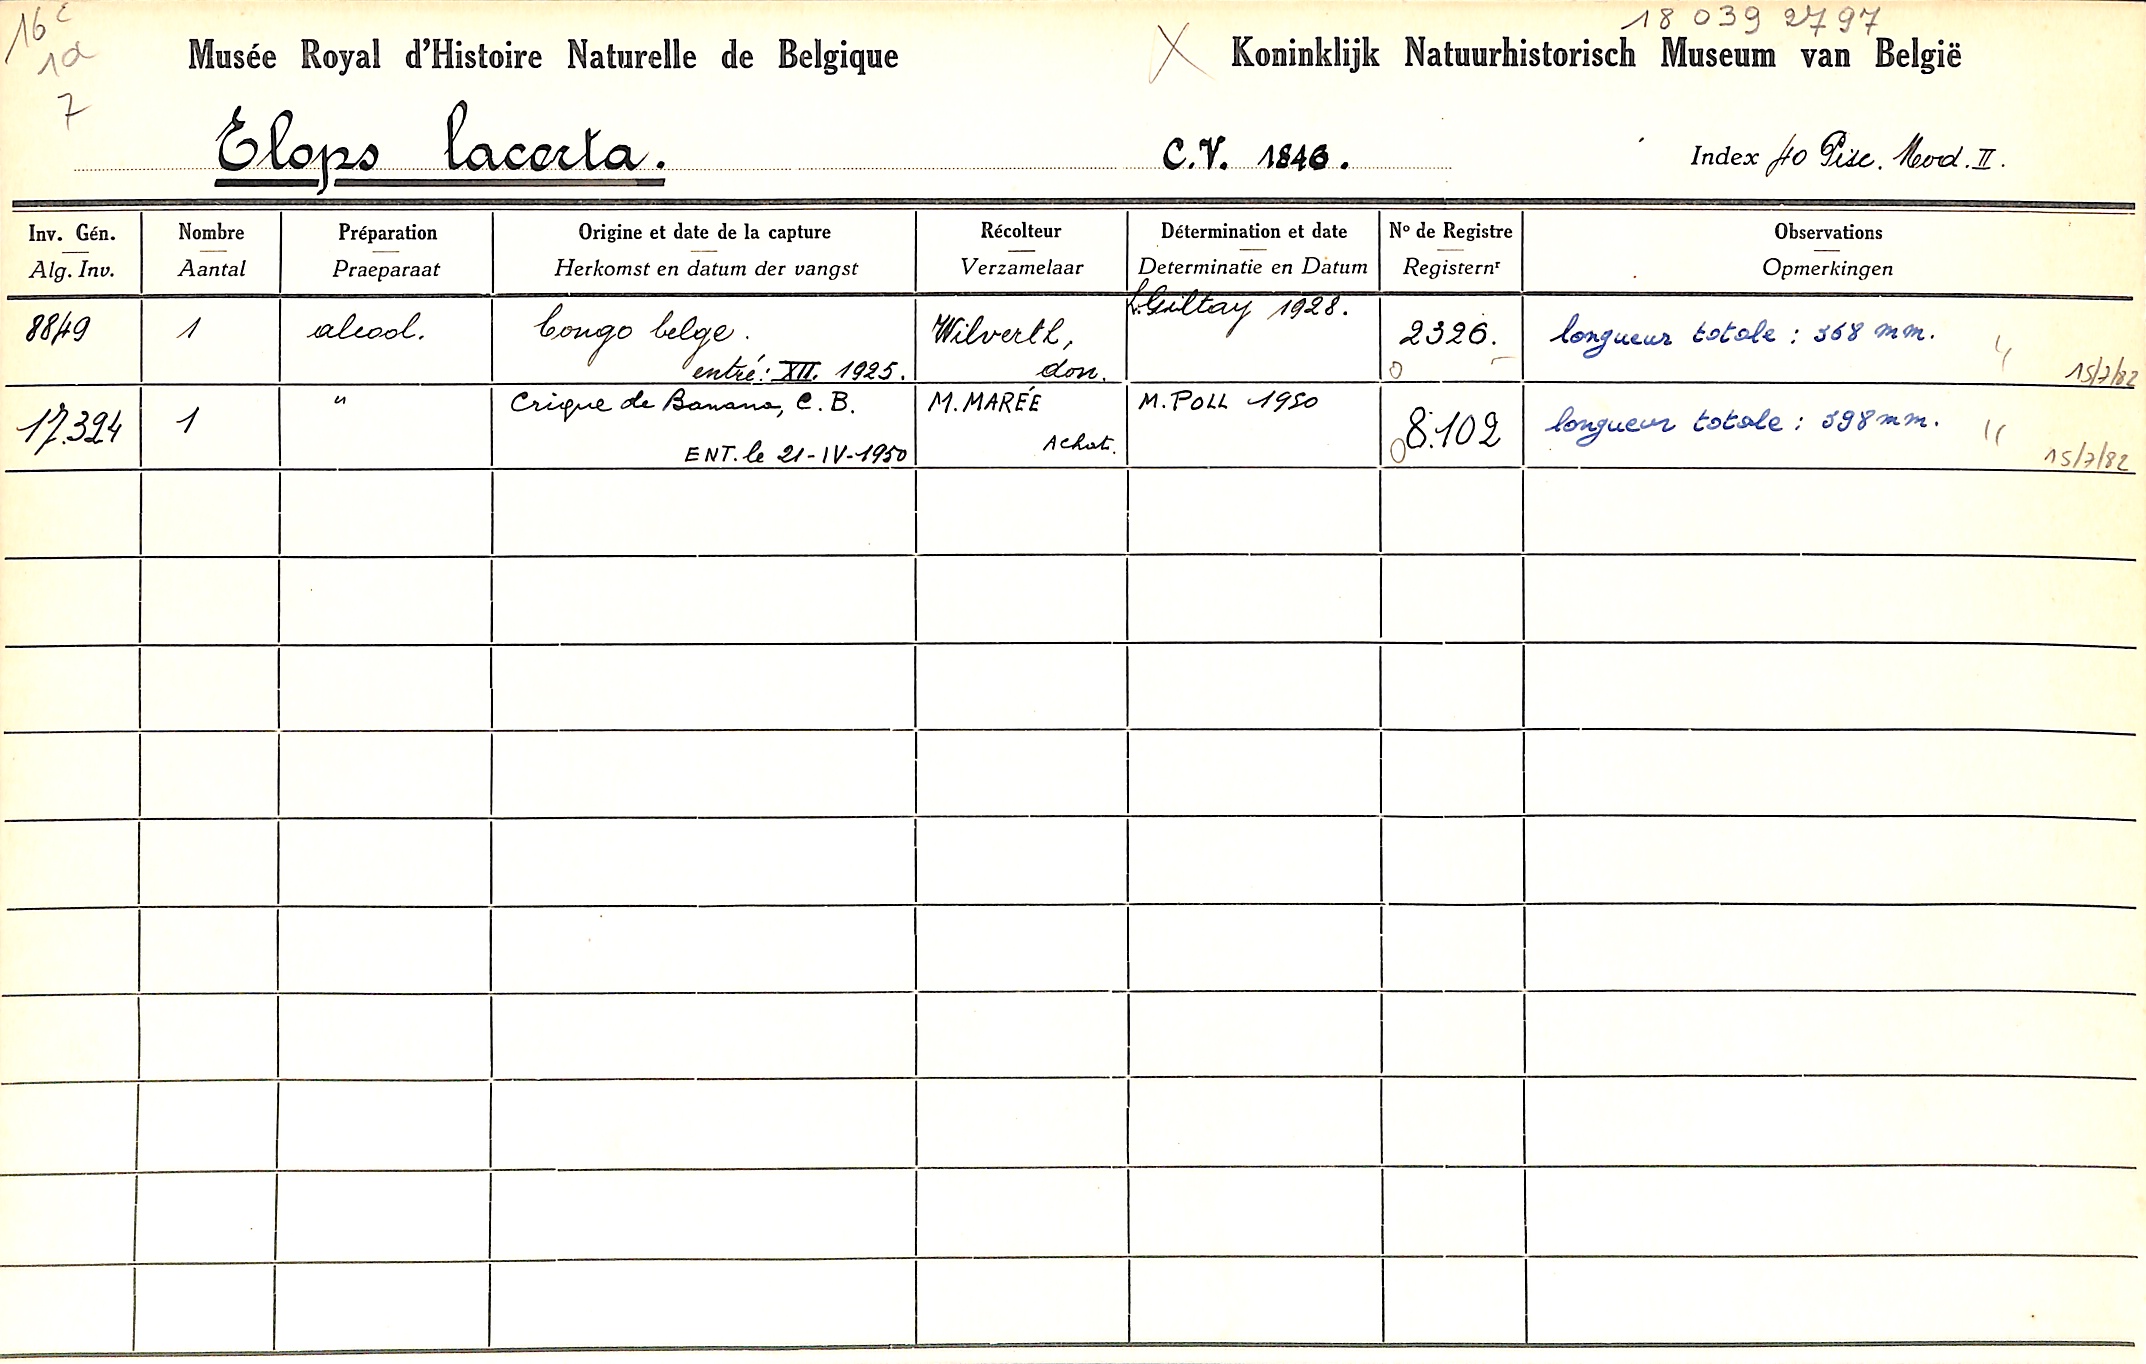 16c
1a
7
18 039 2797
Musée Royal d'Histoire Naturelle de Belgique X Koninklijk Natuurhistorisch Museum van België
Elops lacerta. C.V. 1846. Index 40 Pisc. Mod. II.
Inv. Gén. Nombre Préparation Origine et date de la capture Récolteur Détermination et date No de Registre Observations
Alg. Inv. Aantal Praeparaat Herkomst en datum der vangst Verzamelaar Determinatie en Datum Registernr Opmerkingen
L. Giltay 1928.
8849 1 alcool. Congo belge. Wilverth, 2326. longueur totale : 368 mm.
entré: XII. 1925. don. 0 15/7/82
" Crique de Banana, C.B. M. MARÉE M. POLL 1950
17.394 1 8.102 longueur totale : 398 mm.
ENT. le 21-IV-1950 Achat. 0 15/7/82